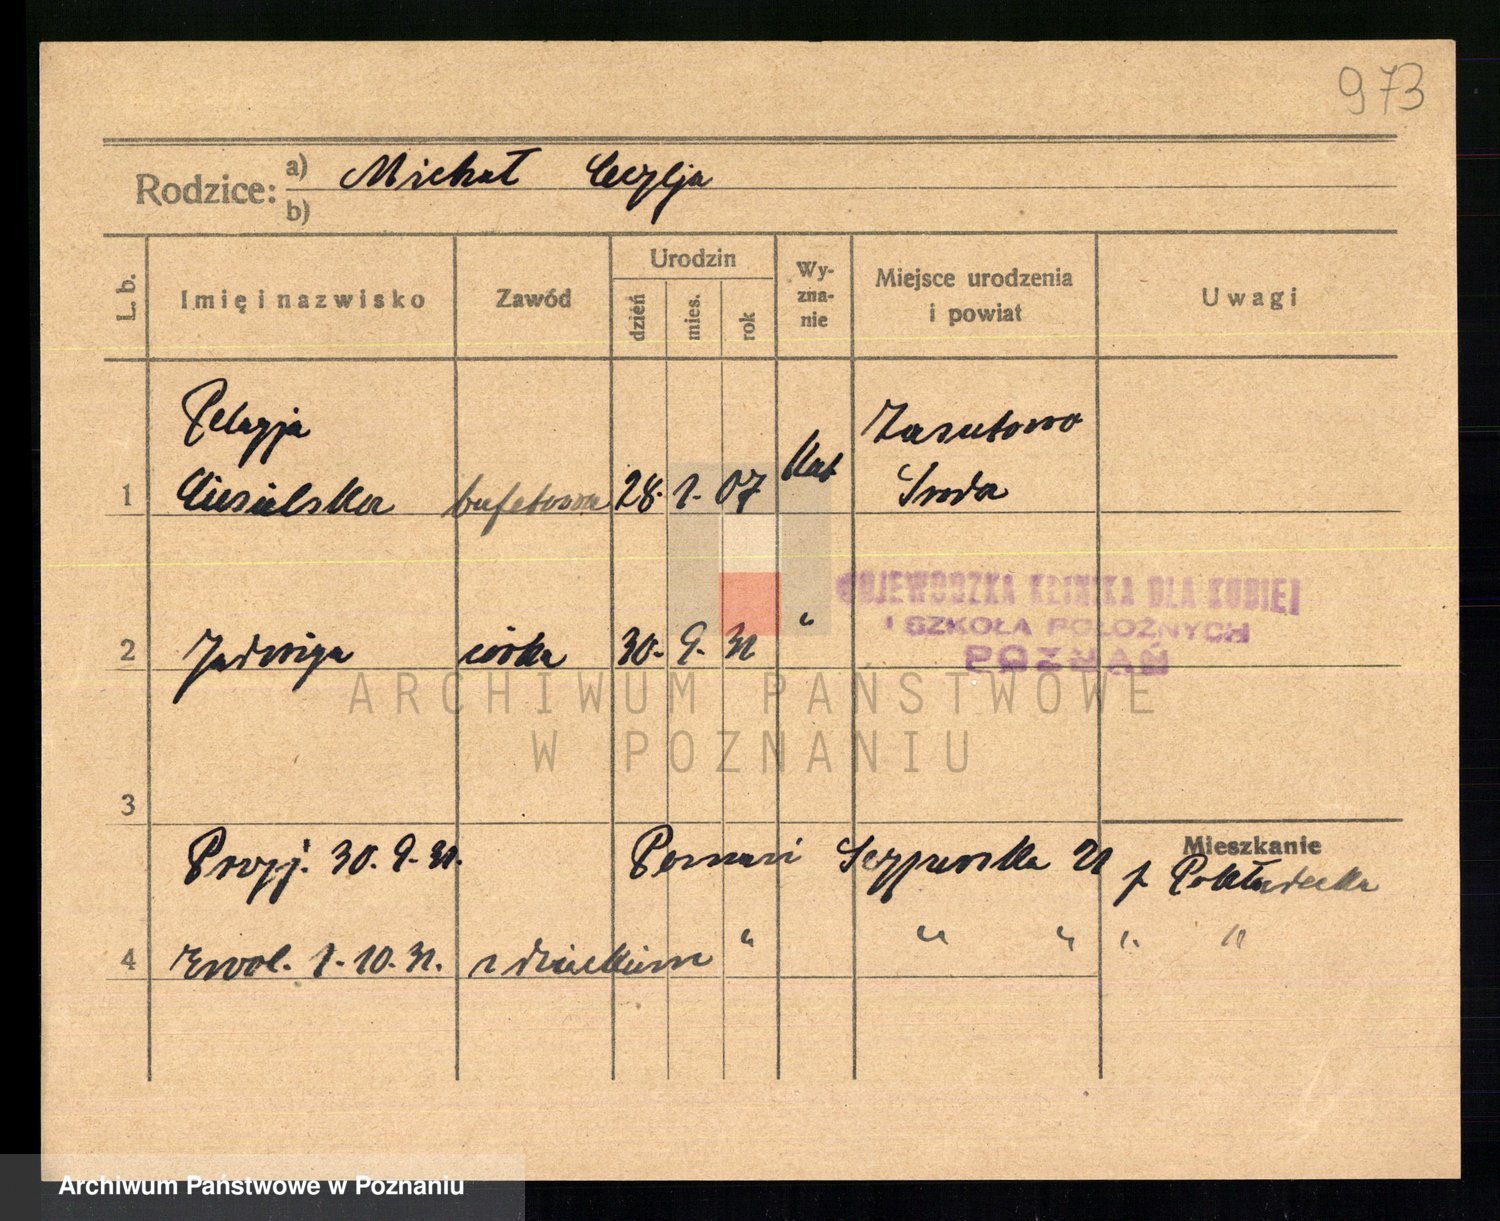 973
Rodzice: a) Michał Cecylja
b)
L. b. Imię i nazwisko Zawód Urodzin dzień mies. rok Wy-zna-nie Miejsce urodzenia i powiat Uwagi
Pelagja Kat Zasutowo
1 Ciesielska bufetowa 28. 1. 07 Środa
WOJEWÓDZKA KLINIKA DLA KOBIET
I SZKOŁA POŁOŻNYCH
POZNAŃ
2 Jadwiga córka 30. 9. 31 "
ARCHIWUM PAŃSTWOWE
W POZNANIU
3
Mieszkanie
Przyj. 30. 9. 31. Poznań 21 p.
4 Zwol. 1. 10. 31. z dzieckiem " " " " "
Archiwum Państwowe w Poznaniu